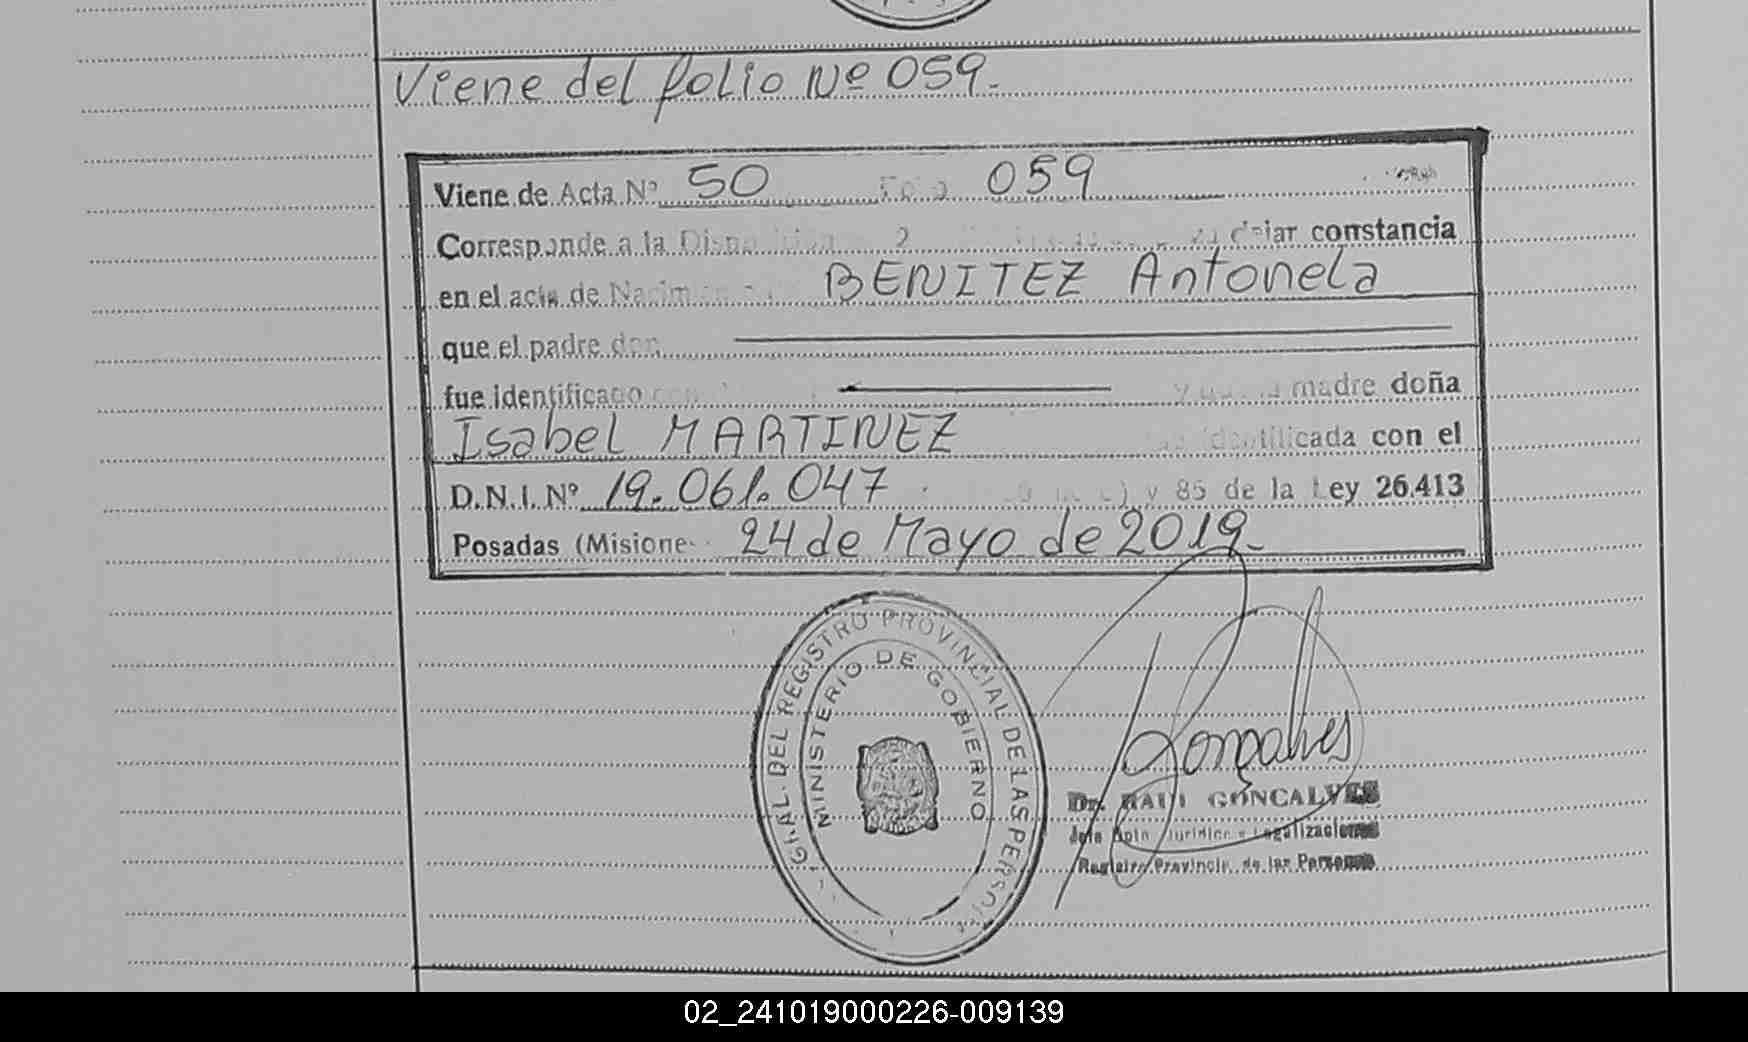 Viene del folio Nº 059.-
Viene de Acta Nº 50 Folio 059
Corresponde a la 2 dejar constancia
en el acta de Nacim BENITEZ Antonela
que el padre don
fue identificado con madre doña
Isabel MARTINEZ identificada con el
D.N.I. Nº 19.061.047 y 85 de la Ley 26.413
Posadas (Misione 24 de Mayo de 2019.-
GRAL. DEL REGISTRO PROVINCIAL DE LAS PERSON
MINISTERIO DE GOBIERNO
Gonçalves
Dr. RAUL GONCALVES
Jefe Dpto Jurídico Legalizaciones
Registro Provincial de las Personas
02_241019000226-009139